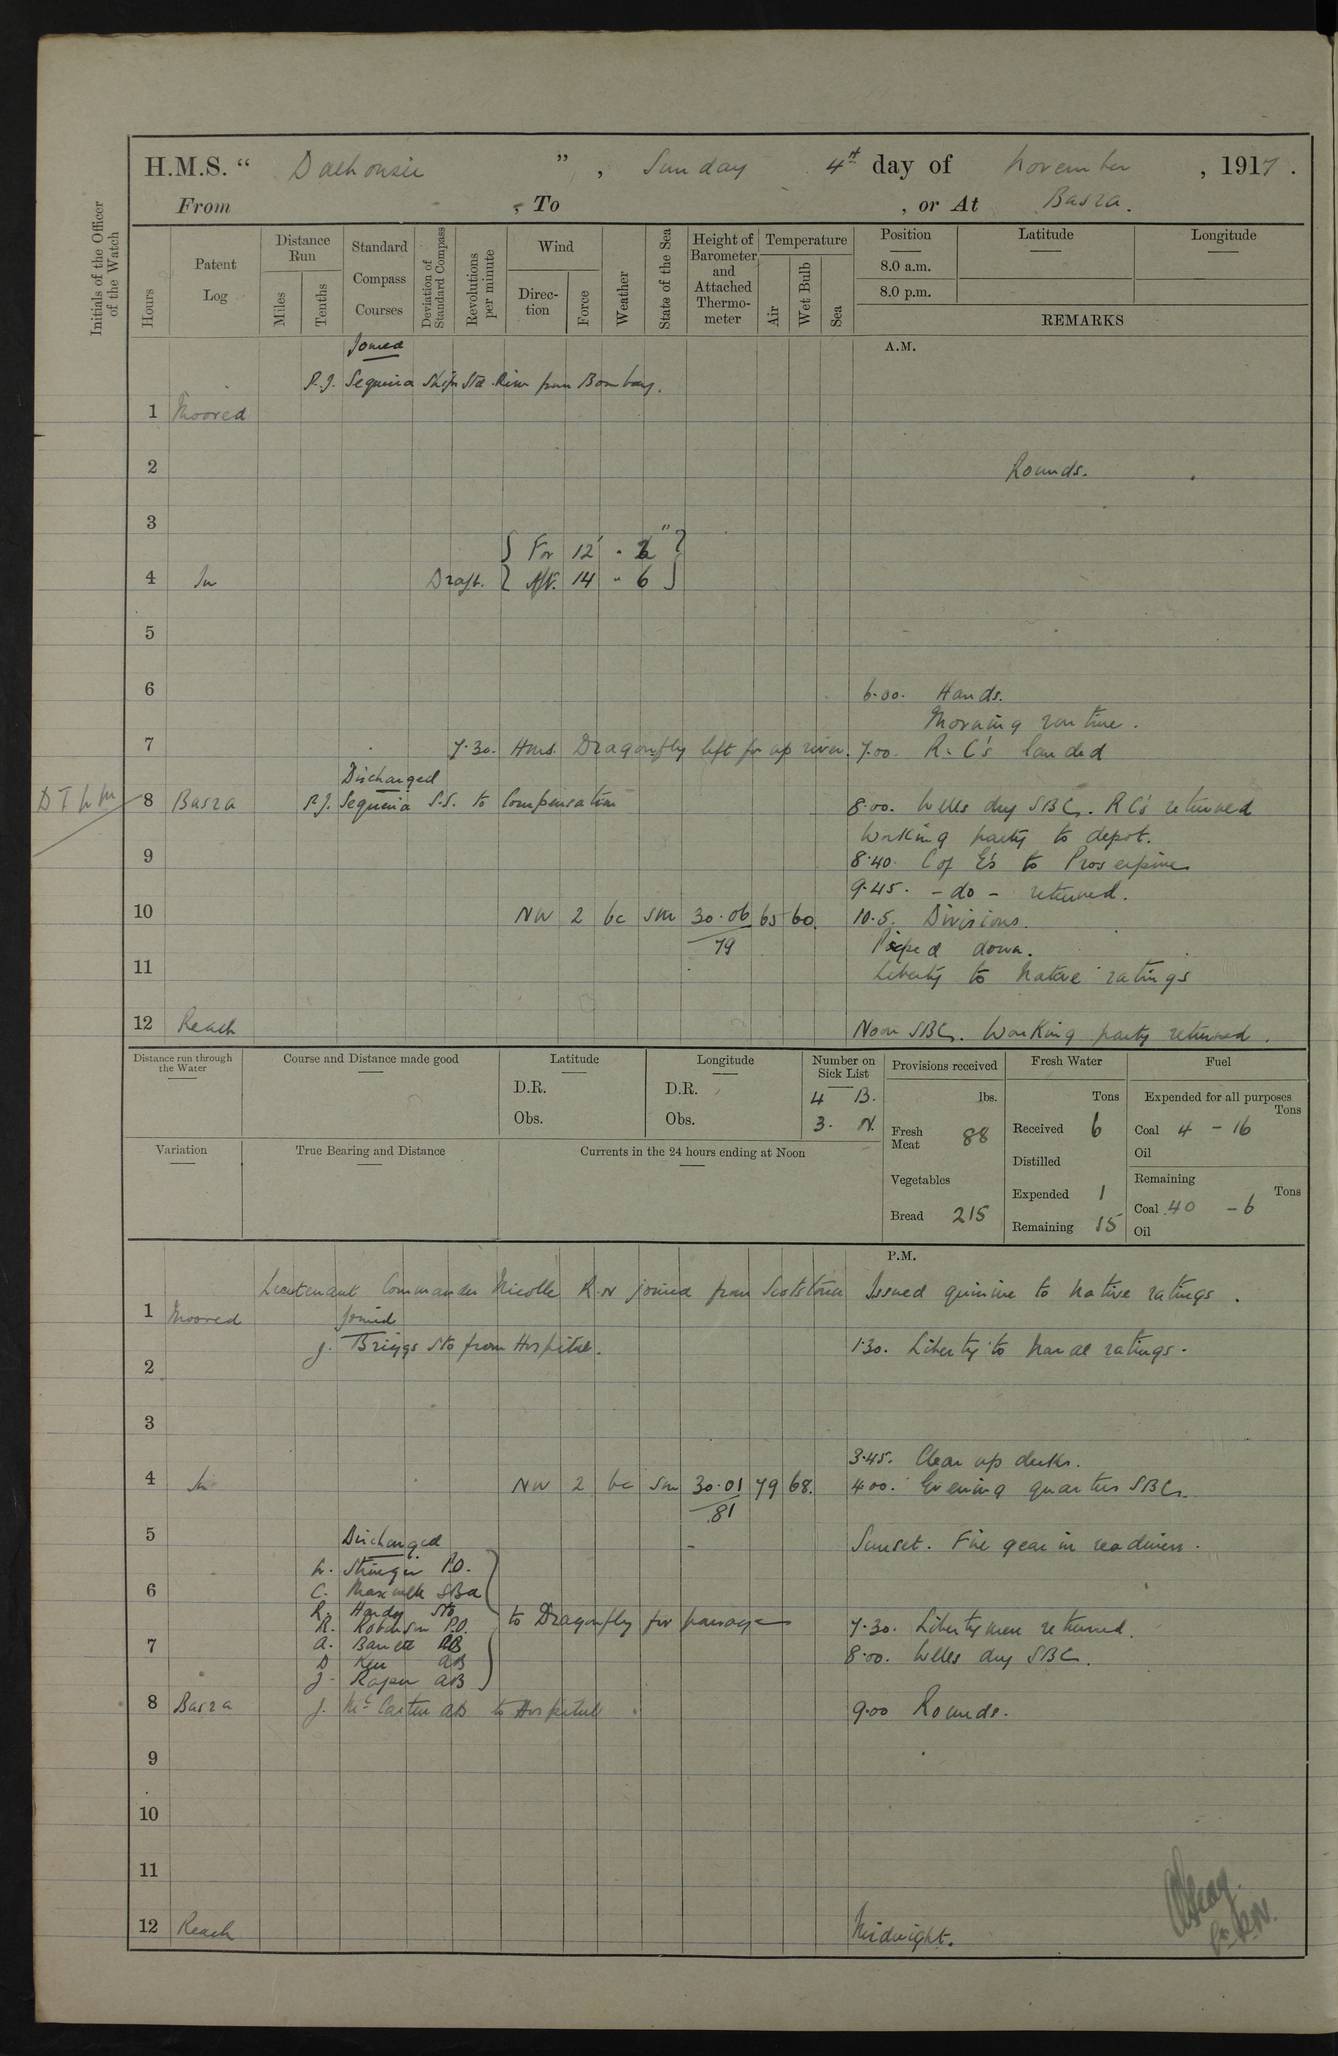 H.M.S. " Dalhousie ", Sunday 4th day of November, 1917.
From , To , or At Basra.
Initials of the Officer of the Watch
Hours
Patent Log
Distance Run
Miles
Tenths
Standard Compass Courses
Deviation of Standard Compass
Revolutions per minute
Wind
Direc-tion
Force
Weather
State of the Sea
Height of Barometer and Attached Thermo-meter
Temperature
Air
Wet Bulb
Sea
Position
8.0 a.m.
8.0 p.m.
Latitude
Longitude
REMARKS
A.M.
Joined
P.J. Sequeira Ship Std. River from Bombay.
1 Moored
2 Rounds.
3
{ For 12' - 6" }
4 In Draft. { Aft. 14 - 6 }
5
6 6.00. Hands.
Morning routine.
7 7.30. H.M.S. Dragonfly left for up river. 7.00. R.C's landed
Discharged
8 Basra P.J. Sequeira S.S. to Compensation 8.00. Wells dug SBC. RC's returned
Working party to depot.
9 8.40. C of E's to Proserpine
9.45. - do - returned.
10 NW 2 bc sm 30.06 65 60. 10.5. Divisions.
79 Piped down.
11 Liberty to native ratings
12 Reach Noon SBC. Working party returned.
Distance run through the Water
Course and Distance made good
Latitude
D.R.
Obs.
Longitude
D.R.
Obs.
Number on Sick List
4 B.
3. N.
Provisions received
lbs.
Fresh Meat 88
Vegetables
Bread 215
Fresh Water
Tons
Received 6
Distilled
Expended 1
Remaining 15
Fuel
Expended for all purposes
Tons
Coal 4 - 16
Oil
Remaining
Tons
Coal 40 - 6
Oil
Variation
True Bearing and Distance
Currents in the 24 hours ending at Noon
P.M.
Lieutenant Commander Nicolle R.N joined from Scotstoun Issued quinine to native ratings.
1 Moored Joined
J. Briggs Sto from Hospital. 1.30. Liberty to naval ratings.
2
3
3.45. Clear up decks.
4 In NW 2 bc sm 30.01 79 68. 4.00. Evening quarters SBC.
81
5 Discharged Sunset. Fire gear in readiness.
W. Stringer P.O.
6 C. Maxwell SBA
R. Hardy Sto
R. Robinson P.O. to Dragonfly for passage 7.30. Liberty men returned.
7 A. Barrett AB 8.00. Wells dug SBC.
D Kerr AB
J. Raper AB
8 Basra J. McCarter AB to Hospital 9.00 Rounds.
9
10
11
12 Reach Midnight.